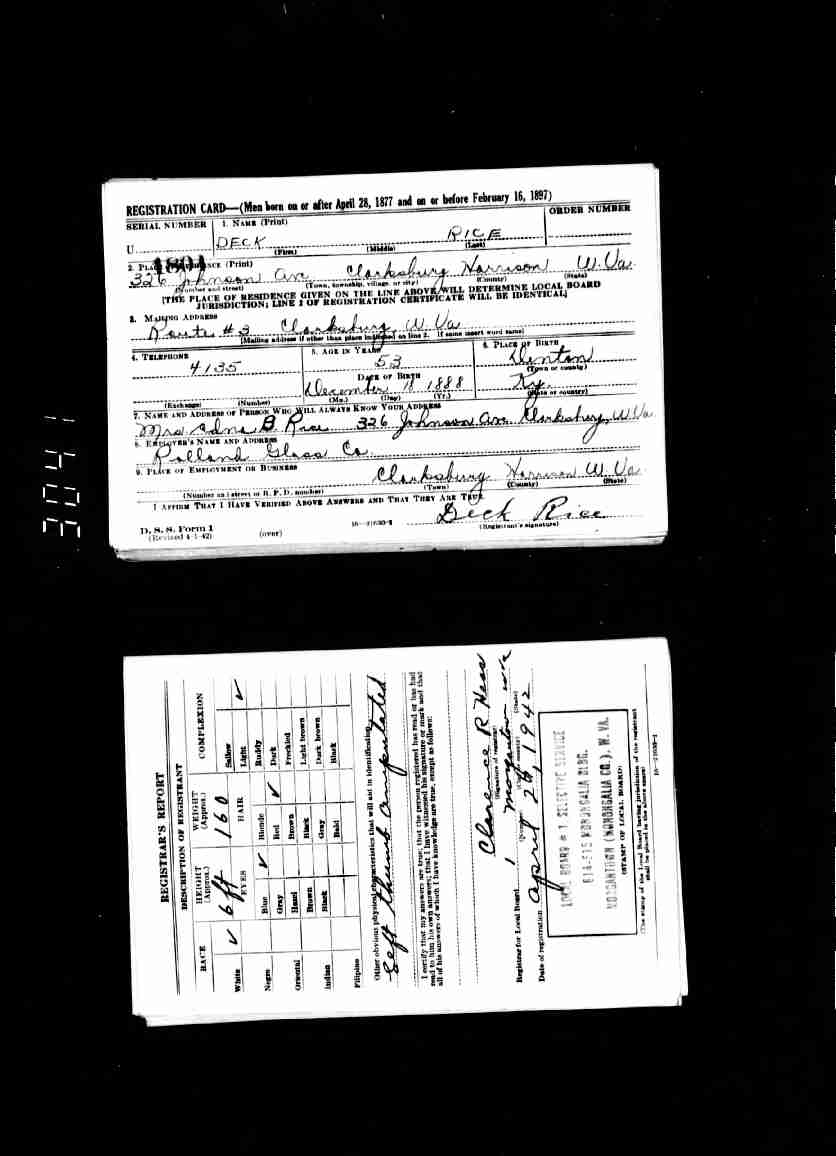 REGISTRATION CARD—(Men born on or after April 28, 1877 and on or before February 16, 1897)
SERIAL NUMBER 1. NAME (Print) ORDER NUMBER
U 1801 DECK RICE
(First) (Middle) (Last)
2. PLACE OF RESIDENCE (Print)
326 Johnson Av. Clarksburg Harrison W. Va.
(Number and street) (Town, township, village, or city) (County) (State)
[THE PLACE OF RESIDENCE GIVEN ON THE LINE ABOVE WILL DETERMINE LOCAL BOARD
JURISDICTION; LINE 2 OF REGISTRATION CERTIFICATE WILL BE IDENTICAL]
3. MAILING ADDRESS
Route #3 Clarksburg, W. Va.
[Mailing address if other than place indicated on line 2. If same insert word same]
4. TELEPHONE 5. AGE IN YEARS 6. PLACE OF BIRTH
4135 53 Denton
DATE OF BIRTH (Town or county)
December 18 1888 Ky.
(Exchange) (Number) (Mo.) (Day) (Yr.) (State or country)
7. NAME AND ADDRESS OF PERSON WHO WILL ALWAYS KNOW YOUR ADDRESS
Mrs Edna B. Rice 326 Johnson Av. Clarksburg, W. Va.
8. EMPLOYER'S NAME AND ADDRESS
Rolland Glass Co.
9. PLACE OF EMPLOYMENT OR BUSINESS
Clarksburg Harrison W. Va.
(Number and street or R. F. D. number) (Town) (County) (State)
I AFFIRM THAT I HAVE VERIFIED ABOVE ANSWERS AND THAT THEY ARE TRUE.
Deck Rice
D. S. S. Form 1 16—21630-1 (Registrant's signature)
(Revised 4-1-42) (over)
3041
REGISTRAR'S REPORT
DESCRIPTION OF REGISTRANT
RACE HEIGHT (Approx.) WEIGHT (Approx.) COMPLEXION
6 ft 160
White ✓ EYES HAIR Sallow
Light ✓
Negro Blue ✓ Blonde Ruddy
Gray Red ✓ Dark
Oriental Hazel Brown Freckled
Brown Black Light brown
Indian Black Gray Dark brown
Bald Black
Filipino
Other obvious physical characteristics that will aid in identification
Left thumb amputated
I certify that my answers are true; that the person registered has read or has had
read to him his own answers; that I have witnessed his signature or mark and that
all of his answers of which I have knowledge are true, except as follows:
Clarence R Hess
(Signature of registrar)
Registrar for Local Board 1 Morgantown W Va
(Number) (City or county) (State)
Date of registration April 26, 1942
LOCAL BOARD # 1 SELECTIVE SERVICE
614-615 MONONGALIA BLDG.
MORGANTOWN (MONONGALIA CO.), W. VA.
(STAMP OF LOCAL BOARD)
(The stamp of the Local Board having jurisdiction of the registrant
shall be placed in the above space)
16—21630-1